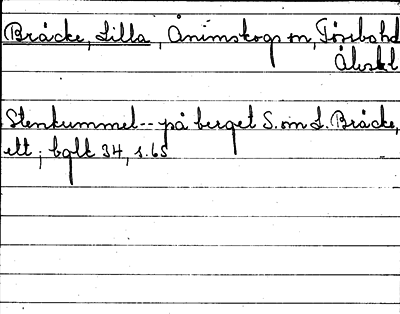 Bräcke, Lilla, Ånimskogs sn, Tössbohd
Älvsbl
Stenkummel -- på berget S. om L. Bräcke,
ett; bglk 34, s. 65